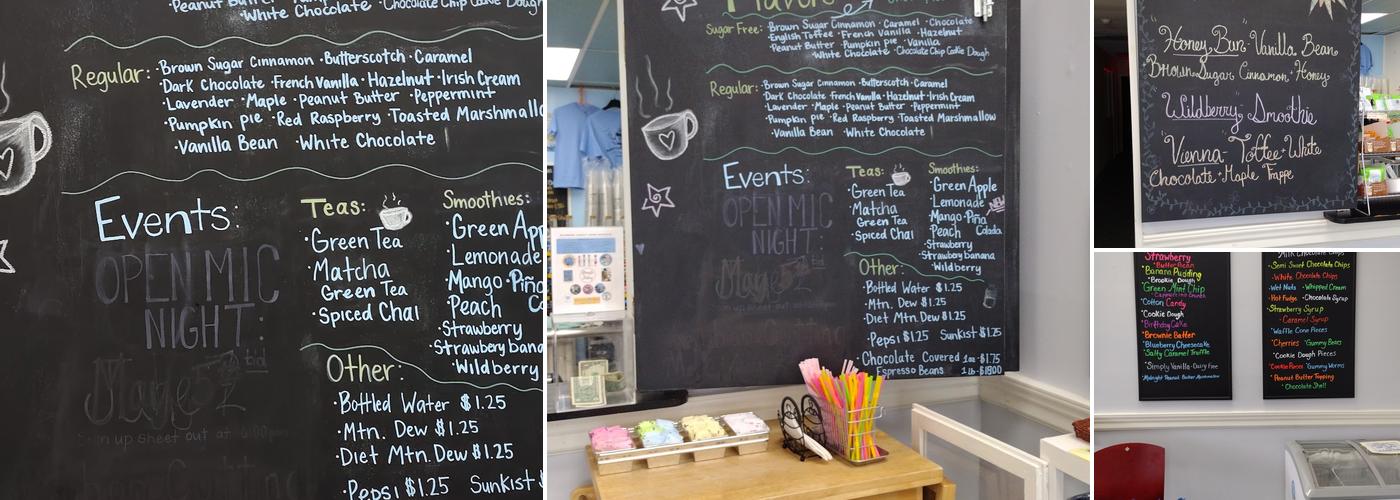 White Chocolate · Chocolate Chip Cookie Dough
Regular: · Brown Sugar Cinnamon · Butterscotch · Caramel
· Dark Chocolate · French Vanilla · Hazelnut · Irish Cream
· Lavender · Maple · Peanut Butter · Peppermint
· Pumpkin pie · Red Raspberry · Toasted Marshmallo
· Vanilla Bean · White Chocolate
Events:
OPEN MIC
NIGHT:
Sign up sheet out at
Teas:
· Green Tea
· Matcha
Green Tea
· Spiced Chai
Smoothies:
· Green Ap
· Lemonade
· Mango · Piña
· Peach
· Strawberry
· Strawberry bana
· Wildberry
Other:
· Bottled Water $1.25
· Mtn. Dew $1.25
· Diet Mtn. Dew $1.25
· Pepsi $1.25 Sunkist $
Flavors
Sugar Free: · Brown Sugar Cinnamon · Caramel · Chocolate
· English Toffee · French Vanilla · Hazelnut
· Peanut Butter · Pumpkin pie · Vanilla
· White Chocolate · Chocolate Chip Cookie Dough
Regular: · Brown Sugar Cinnamon · Butterscotch · Caramel
· Dark Chocolate · French Vanilla · Hazelnut · Irish Cream
· Lavender · Maple · Peanut Butter · Peppermint
· Pumpkin pie · Red Raspberry · Toasted Marshmallow
· Vanilla Bean · White Chocolate
Events:
OPEN MIC
NIGHT:
Teas:
· Green Tea
· Matcha
Green Tea
· Spiced Chai
Smoothies:
· Green Apple
· Lemonade
· Mango · Piña
· Peach Colada
· Strawberry
· Strawberry banana
· Wildberry
Other:
· Bottled Water $1.25
· Mtn. Dew $1.25
· Diet Mtn. Dew $1.25
· Pepsi $1.25 Sunkist $1.25
· Chocolate Covered 1oz - $1.75
Espresso Beans 1 lb - $18.00
"Honey Bun" Vanilla Bean
Brown Sugar Cinnamon · Honey
"Wildberry" Smoothie
"Vienna" Toffee · White
Chocolate · Maple Frappe
Strawberry
· Butter Pecan
· Banana Pudding
· Brookie Dough
· Green Mint Chip
· Cotton Candy
· Cookie Dough
· Birthday Cake
· Brownie Batter
· Blueberry Cheesecake
· Salty Caramel Truffle
· Simply Vanilla - Dairy Free
· Midnight Peanut Butter Marshmallow
Milk Chocolate Chips
· Semi Sweet Chocolate Chips
· White Chocolate Chips
· Wet Nuts · Whipped Cream
· Hot Fudge · Chocolate Syrup
· Strawberry Syrup
· Caramel Syrup
· Waffle Cone Pieces
· Cherries · Gummy Bears
· Cookie Dough Pieces
· Cookie Pieces · Gummy Worms
· Peanut Butter Topping
· Chocolate Shell